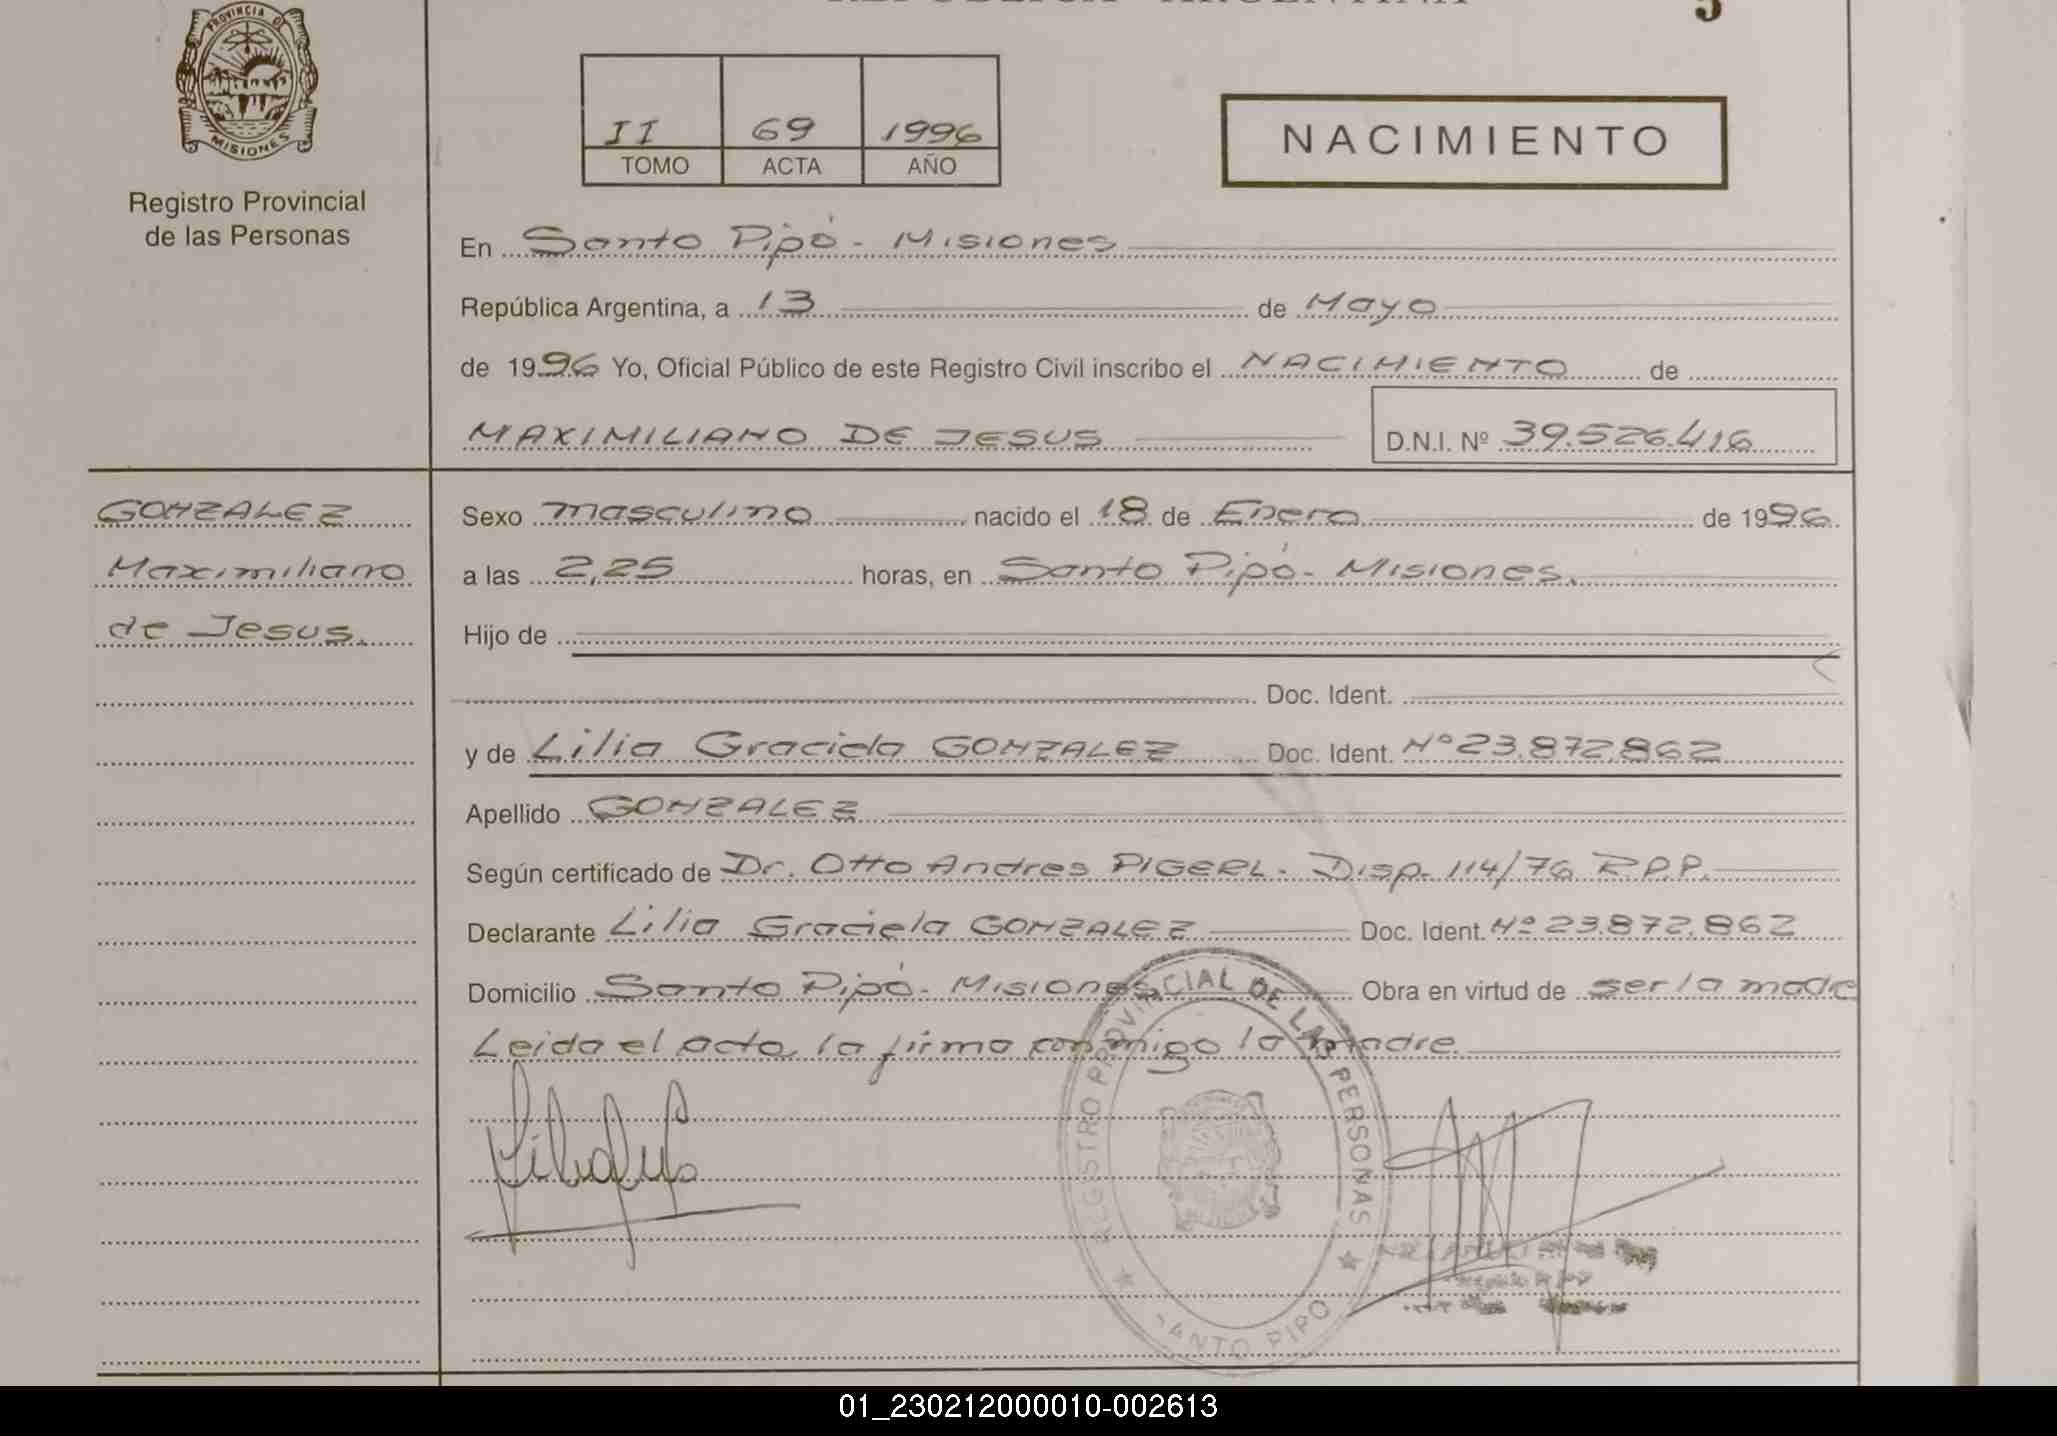 PROVINCIA DE
MISIONES
REPUBLICA ARGENTINA
5
Registro Provincial
de las Personas
II 69 1996
TOMO ACTA AÑO
NACIMIENTO
En Santo Pipó - Misiones
República Argentina, a 13 de Mayo
de 1996 Yo, Oficial Público de este Registro Civil inscribo el NACIMIENTO de
MAXIMILIANO DE JESUS D.N.I. Nº 39.526.416
GONZALEZ
Maximiliano
de Jesus.
Sexo masculino nacido el 18 de Enero de 1996
a las 2,25 horas, en Santo Pipó - Misiones.
Hijo de
Doc. Ident.
y de Lilia Graciela GONZALEZ Doc. Ident. Nº 23.872.862
Apellido GONZALEZ
Según certificado de Dr. Otto Andres PIGERL - Disp. 114/76 R.P.P.
Declarante Lilia Graciela GONZALEZ Doc. Ident. Nº 23.872.862
Domicilio Santo Pipó - Misiones Obra en virtud de ser la madre
Leida el acta, la firma conmigo la madre.
REGISTRO PROVINCIAL DE LAS PERSONAS
SANTO PIPO
01_230212000010-002613